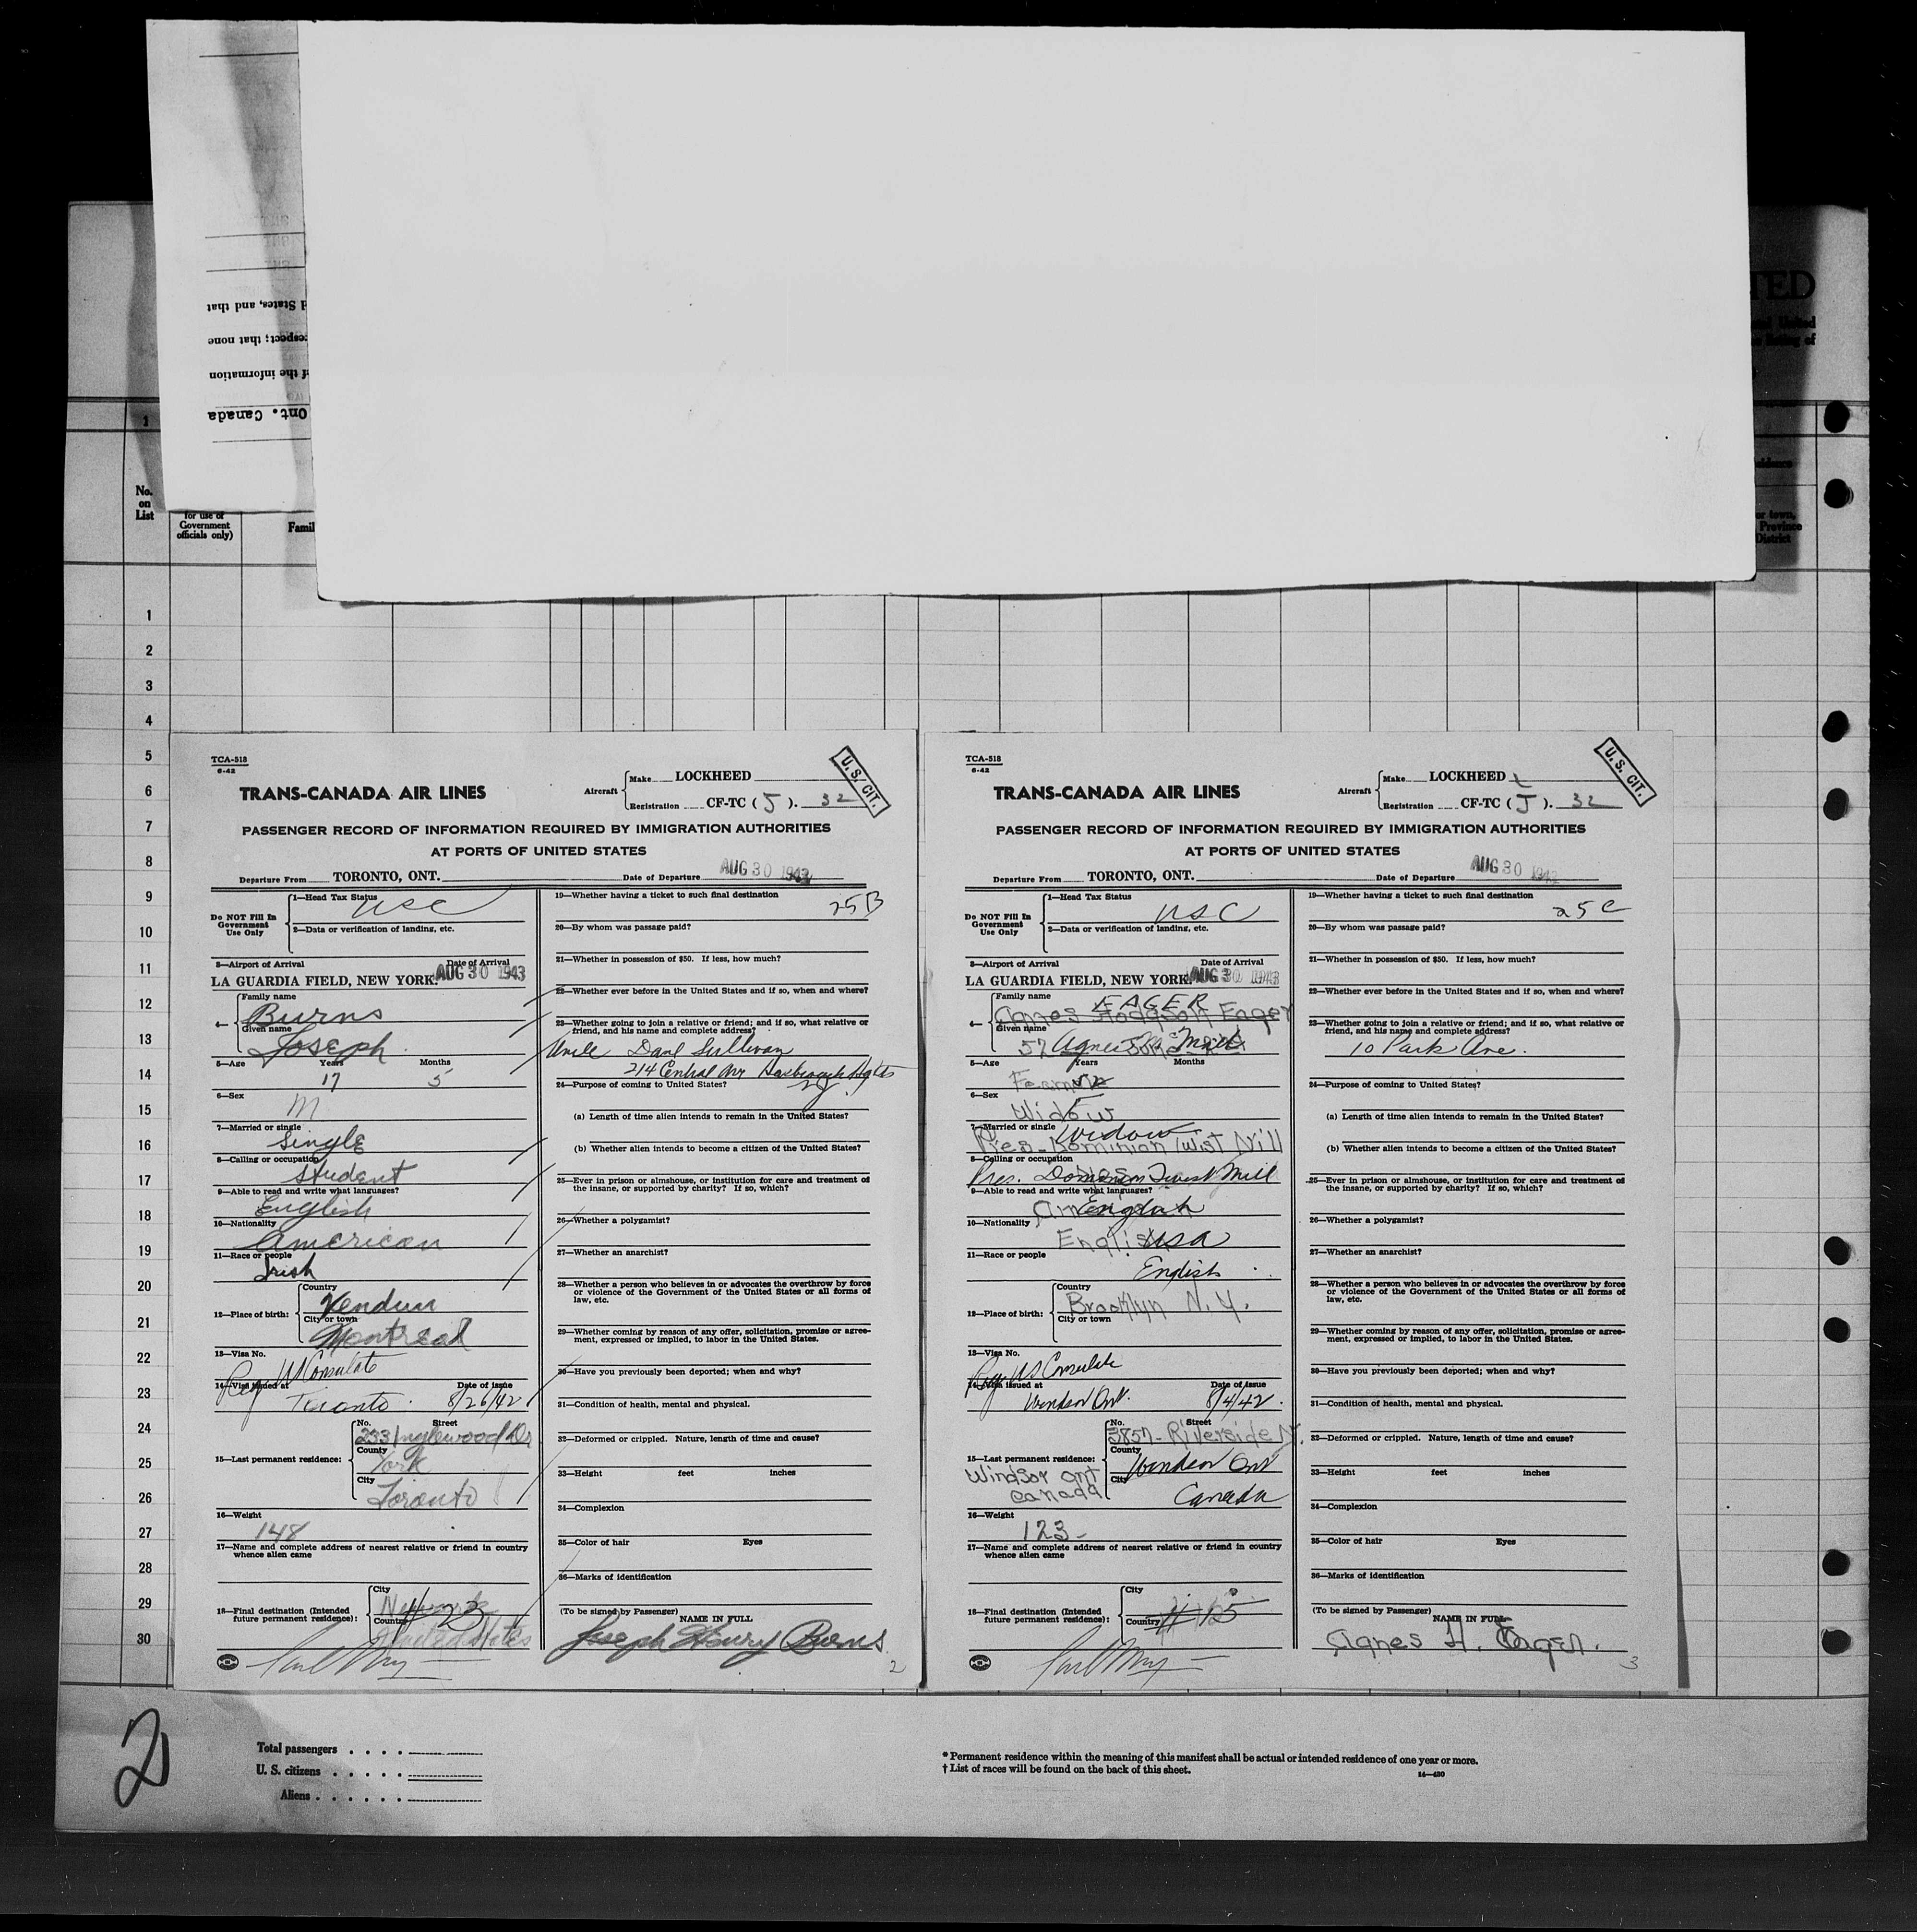 d States, and that
espect; that none
f the information
Ont. Canada
TED
1
No.
on
List
for use of
Government
officials only)
Famil
or town,
Province
District
1
2
3
4
5
6
7
8
9
10
11
12
13
14
15
16
17
18
19
20
21
22
23
24
25
26
27
28
29
30
TCA-518
6-42
TRANS-CANADA AIR LINES
Aircraft
Make LOCKHEED
Registration CF-TC ( J ). 32
U. S. CIT.
PASSENGER RECORD OF INFORMATION REQUIRED BY IMMIGRATION AUTHORITIES
AT PORTS OF UNITED STATES
Departure From TORONTO, ONT. Date of Departure AUG 30 1943
Do NOT Fill In
Government
Use Only
1—Head Tax Status USC
2—Data or verification of landing, etc.
3—Airport of Arrival Date of Arrival
LA GUARDIA FIELD, NEW YORK. AUG 30 1943
4—
Family name
Burns
Given name
Joseph
5—Age Years Months
17 5
6—Sex
M
7—Married or single
Single
8—Calling or occupation
Student
9—Able to read and write what languages?
English
10—Nationality
American
11—Race or people
Irish
12—Place of birth:
Country
City or town
Montreal
13—Visa No.
Reg. US Consulate
14—Visa issued at Date of issue
Toronto 8/26/42
15—Last permanent residence:
No. Street
233 Inglewood Dr
County
York
City
Toronto
16—Weight
148
17—Name and complete address of nearest relative or friend in country
whence alien came
18—Final destination (Intended
future permanent residence):
City
Country
# 23
United States
19—Whether having a ticket to such final destination
25B
20—By whom was passage paid?
21—Whether in possession of $50. If less, how much?
22—Whether ever before in the United States and if so, when and where?
23—Whether going to join a relative or friend; and if so, what relative or
friend, and his name and complete address?
Uncle Danl Sullivan
214 Central Ave Hasbrouck Hgts
NJ
24—Purpose of coming to United States?
(a) Length of time alien intends to remain in the United States?
(b) Whether alien intends to become a citizen of the United States?
25—Ever in prison or almshouse, or institution for care and treatment of
the insane, or supported by charity? If so, which?
26—Whether a polygamist?
27—Whether an anarchist?
28—Whether a person who believes in or advocates the overthrow by force
or violence of the Government of the United States or all forms of
law, etc.
29—Whether coming by reason of any offer, solicitation, promise or agree-
ment, expressed or implied, to labor in the United States.
30—Have you previously been deported; when and why?
31—Condition of health, mental and physical.
32—Deformed or crippled. Nature, length of time and cause?
33—Height feet inches
34—Complexion
35—Color of hair Eyes
36—Marks of identification
(To be signed by Passenger)
NAME IN FULL
Joseph Henry Burns
2
TCA-518
6-42
TRANS-CANADA AIR LINES
Aircraft
Make LOCKHEED
Registration CF-TC ( J ). 32
U. S. CIT.
PASSENGER RECORD OF INFORMATION REQUIRED BY IMMIGRATION AUTHORITIES
AT PORTS OF UNITED STATES
Departure From TORONTO, ONT. Date of Departure AUG 30 1943
Do NOT Fill In
Government
Use Only
1—Head Tax Status
USC
2—Data or verification of landing, etc.
3—Airport of Arrival Date of Arrival
LA GUARDIA FIELD, NEW YORK. AUG 30 1943
4—
Family name
EAGER
Agnes Hodgson Eager
Given name
57 Agnes
5—Age Years Months
6—Sex
Widow
7—Married or single
Widow
Pres. Dominion Twist Drill
8—Calling or occupation
Pres. Dominion Twist Mill
9—Able to read and write what languages?
English
10—Nationality
English USA
11—Race or people
English
12—Place of birth:
Country
Brooklyn N.Y.
City or town
13—Visa No.
Reg. US Consulate
14—Visa issued at Date of issue
Windsor Ont. 8/4/42
15—Last permanent residence:
No. Street
3857 - Riverside Dr.
County
Windsor Ont
City
Windsor Ont
Canada
Canada
16—Weight
123-
17—Name and complete address of nearest relative or friend in country
whence alien came
18—Final destination (Intended
future permanent residence):
City
Country
# 15
19—Whether having a ticket to such final destination
25C
20—By whom was passage paid?
21—Whether in possession of $50. If less, how much?
22—Whether ever before in the United States and if so, when and where?
23—Whether going to join a relative or friend; and if so, what relative or
friend, and his name and complete address?
10 Park Ave.
24—Purpose of coming to United States?
(a) Length of time alien intends to remain in the United States?
(b) Whether alien intends to become a citizen of the United States?
25—Ever in prison or almshouse, or institution for care and treatment of
the insane, or supported by charity? If so, which?
26—Whether a polygamist?
27—Whether an anarchist?
28—Whether a person who believes in or advocates the overthrow by force
or violence of the Government of the United States or all forms of
law, etc.
29—Whether coming by reason of any offer, solicitation, promise or agree-
ment, expressed or implied, to labor in the United States.
30—Have you previously been deported; when and why?
31—Condition of health, mental and physical.
32—Deformed or crippled. Nature, length of time and cause?
33—Height feet inches
34—Complexion
35—Color of hair Eyes
36—Marks of identification
(To be signed by Passenger)
NAME IN FULL
Agnes H. Eager.
3
2
Total passengers
U. S. citizens
Aliens
* Permanent residence within the meaning of this manifest shall be actual or intended residence of one year or more.
† List of races will be found on the back of this sheet.